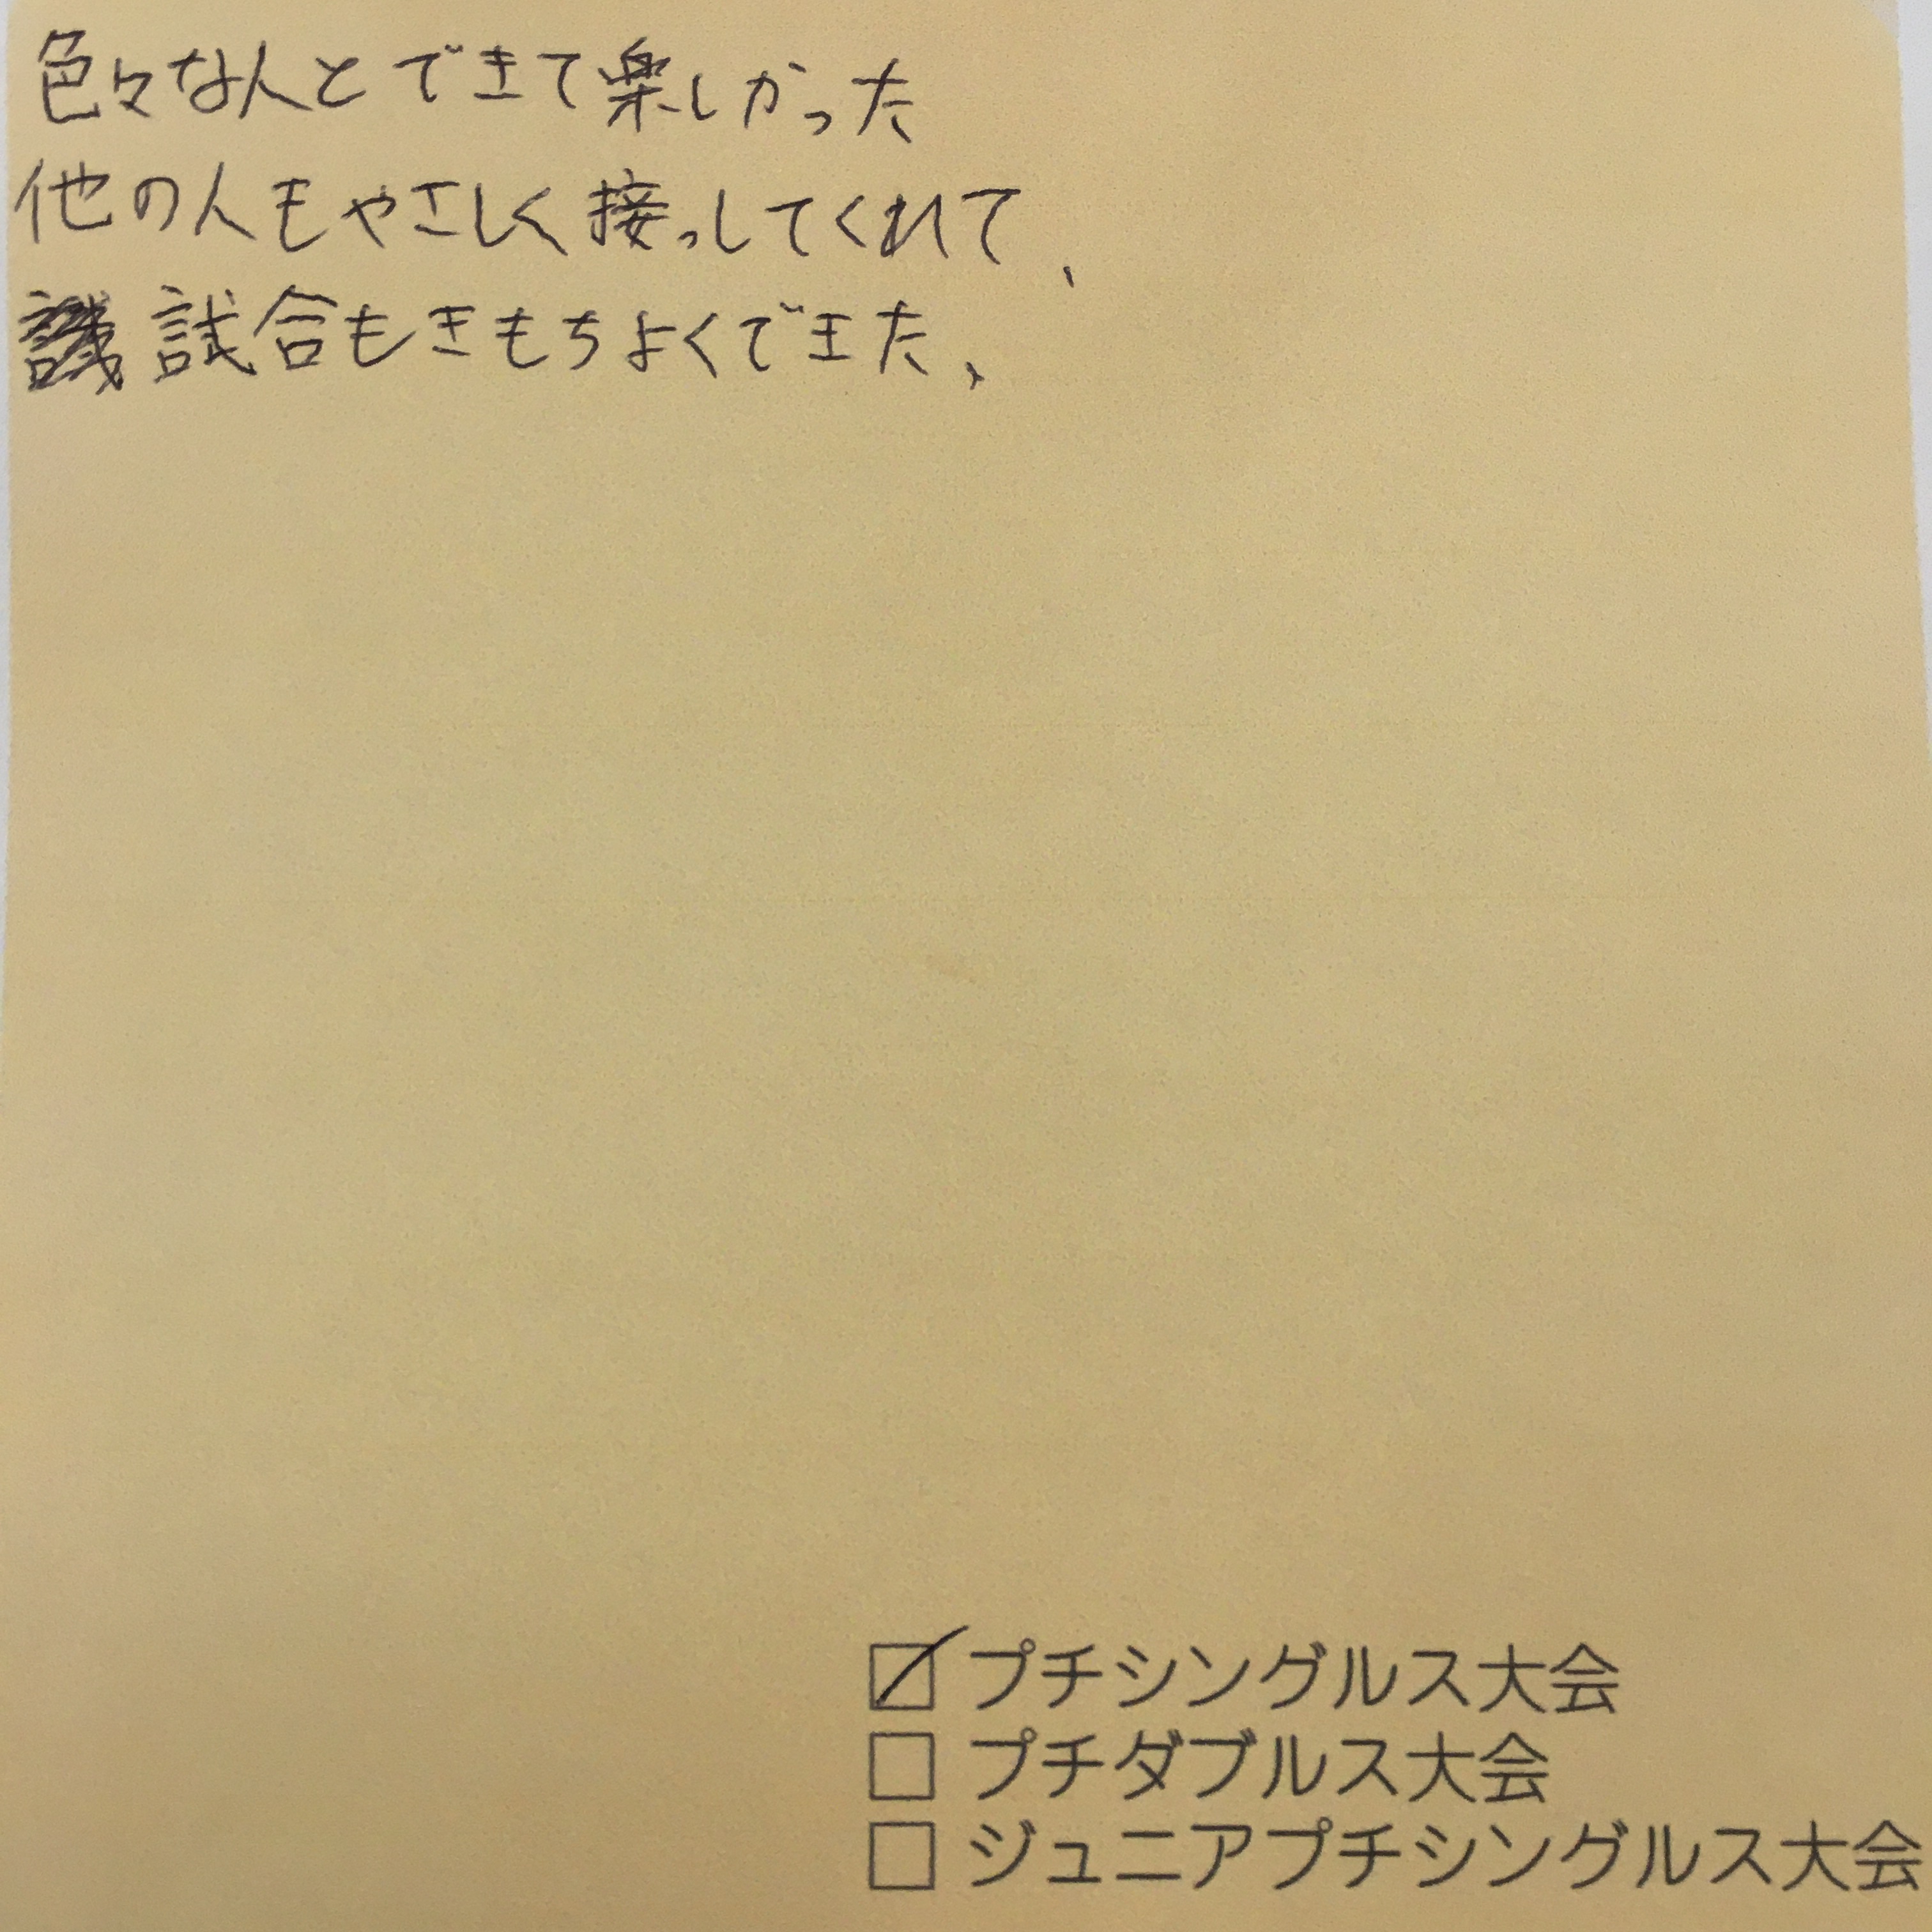 色々な人とできて楽しかった
他の人もやさしく接っしてくれて、
試合もきもちよくできた、
☑ プチシングルス大会
☐ プチダブルス大会
☐ ジュニアプチシングルス大会